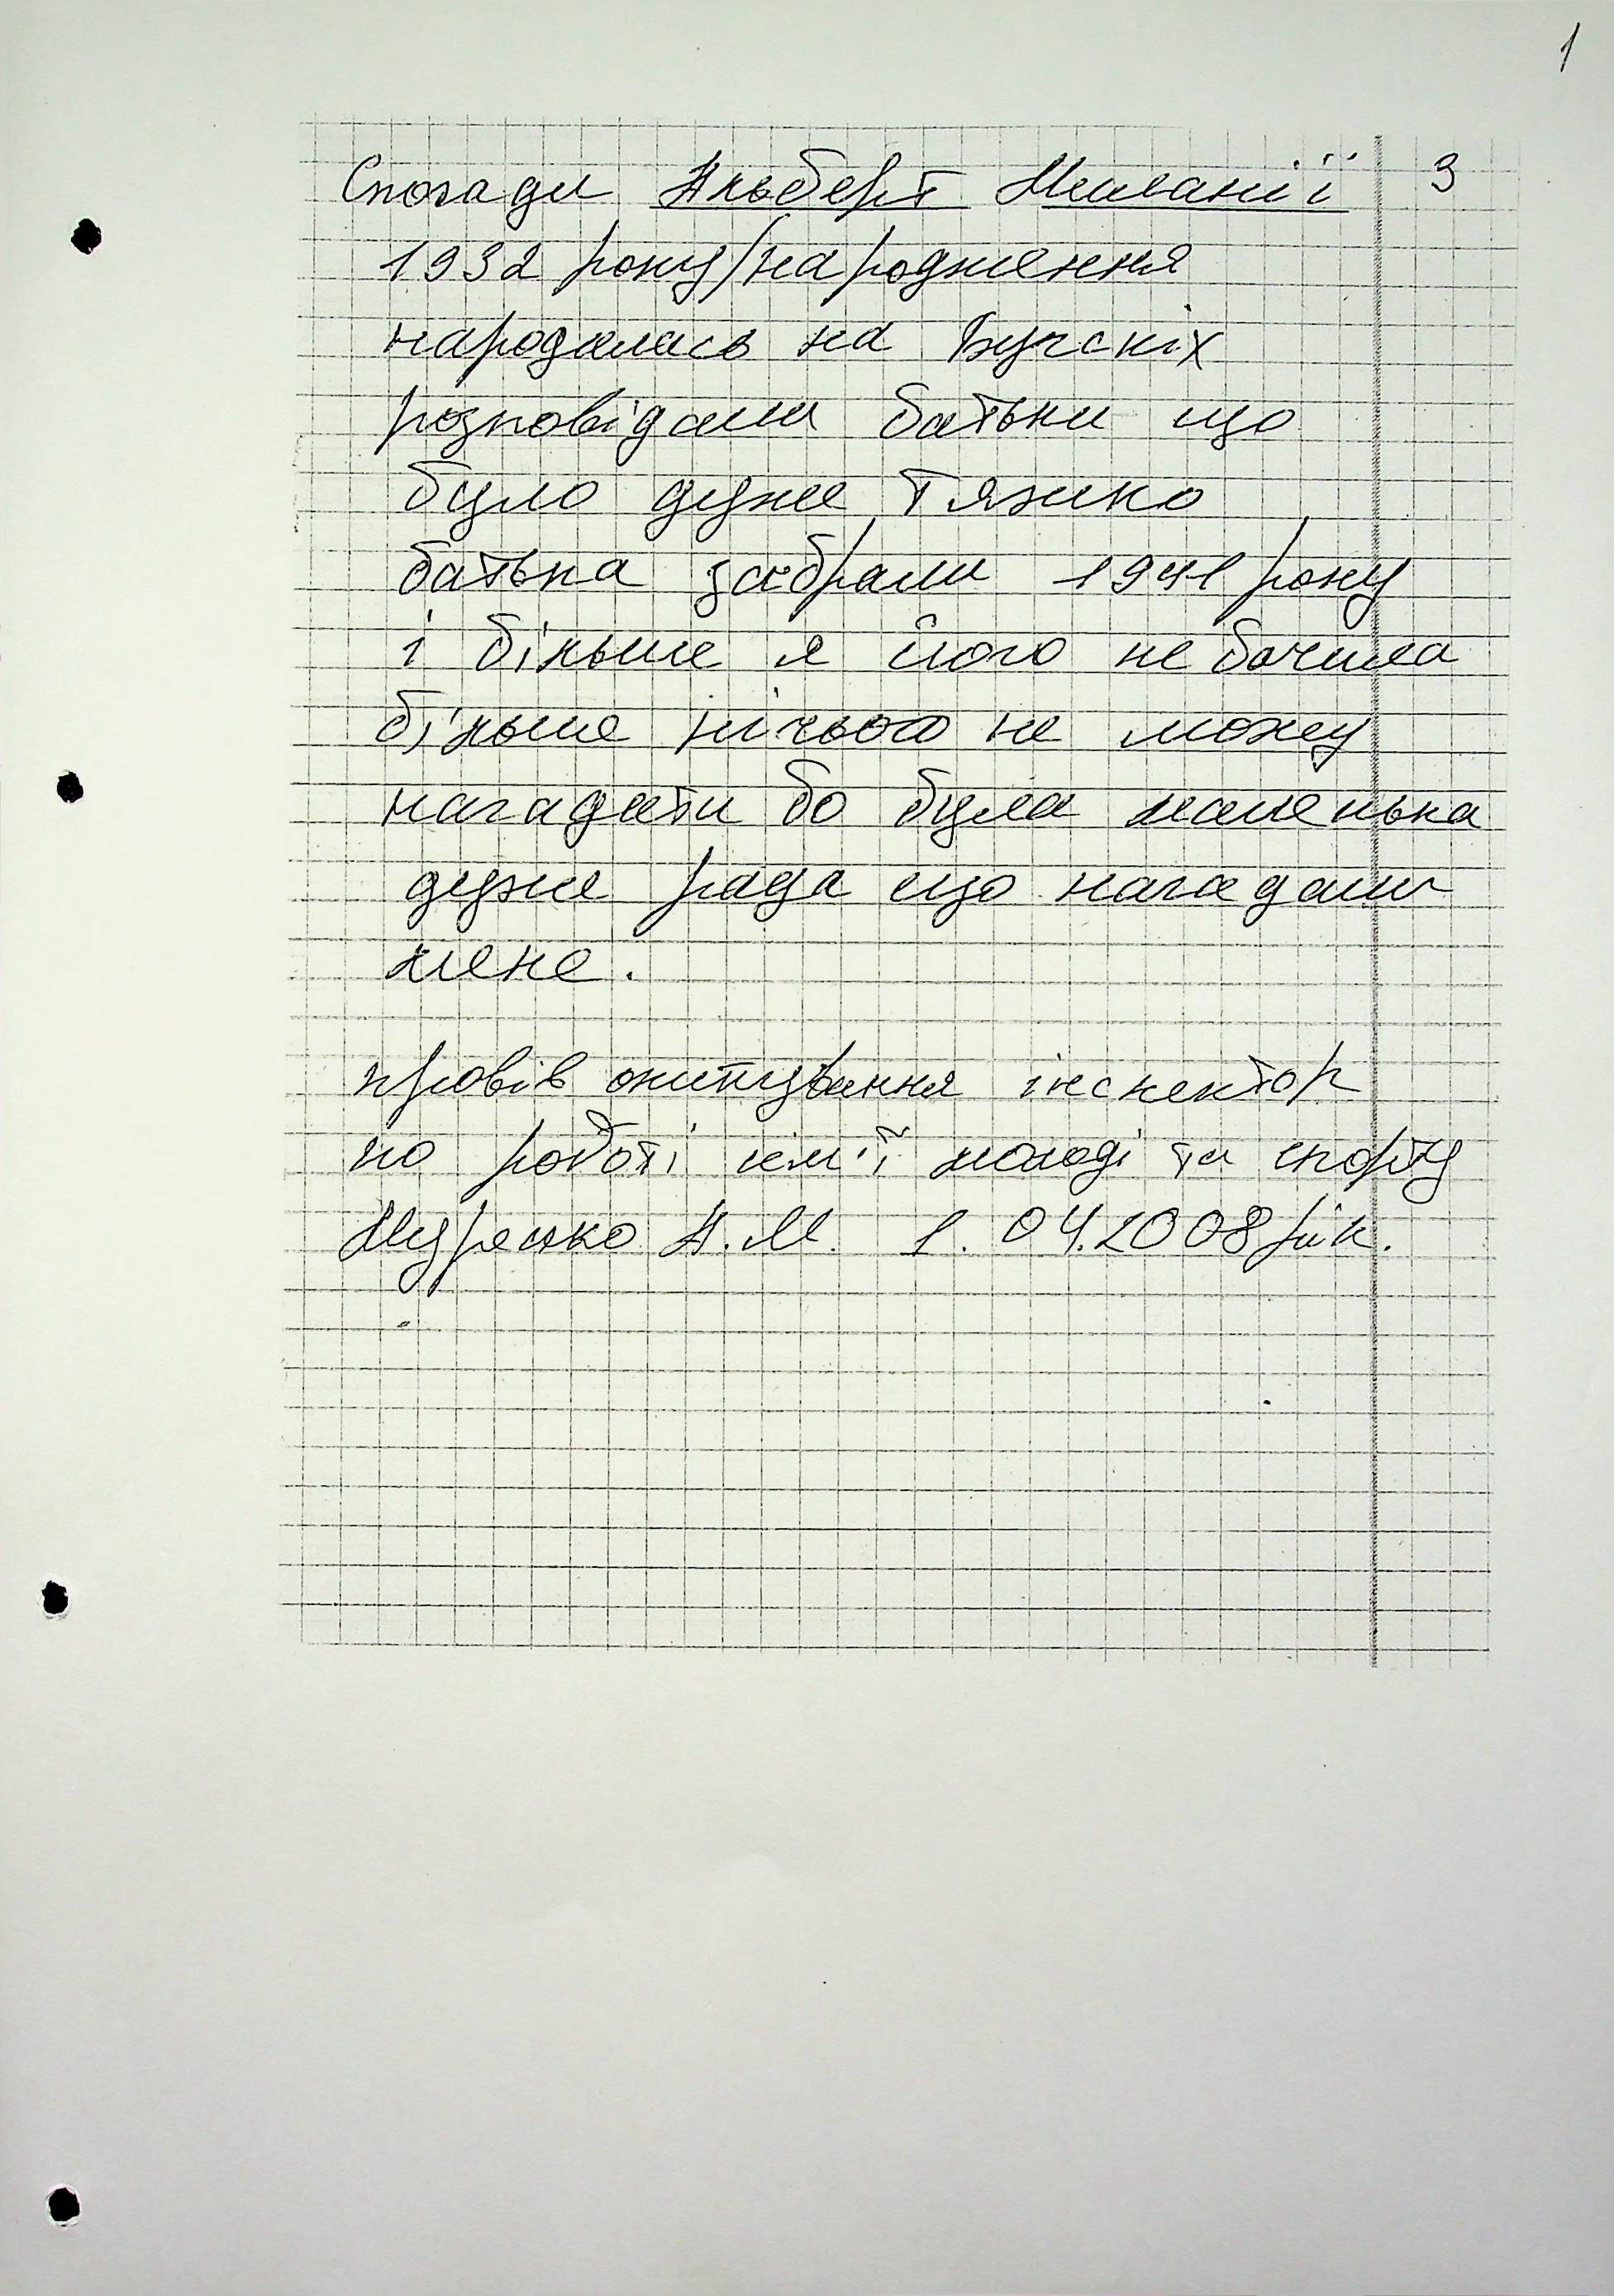 1
Спогади Альберт Меланії 3
1932 року народження
народилась на Бучскіх
розповідали батьки що
було дуже тяжко
батька забрали 1941 року
і більше я його не бачила
більше нічього не можу
нагадати бо була маленька
дуже рада що нагадали
мене.
провів опитування інспектор
по роботі сім'ї молоді та спорту
А.М. 1. 04.2008 рік.